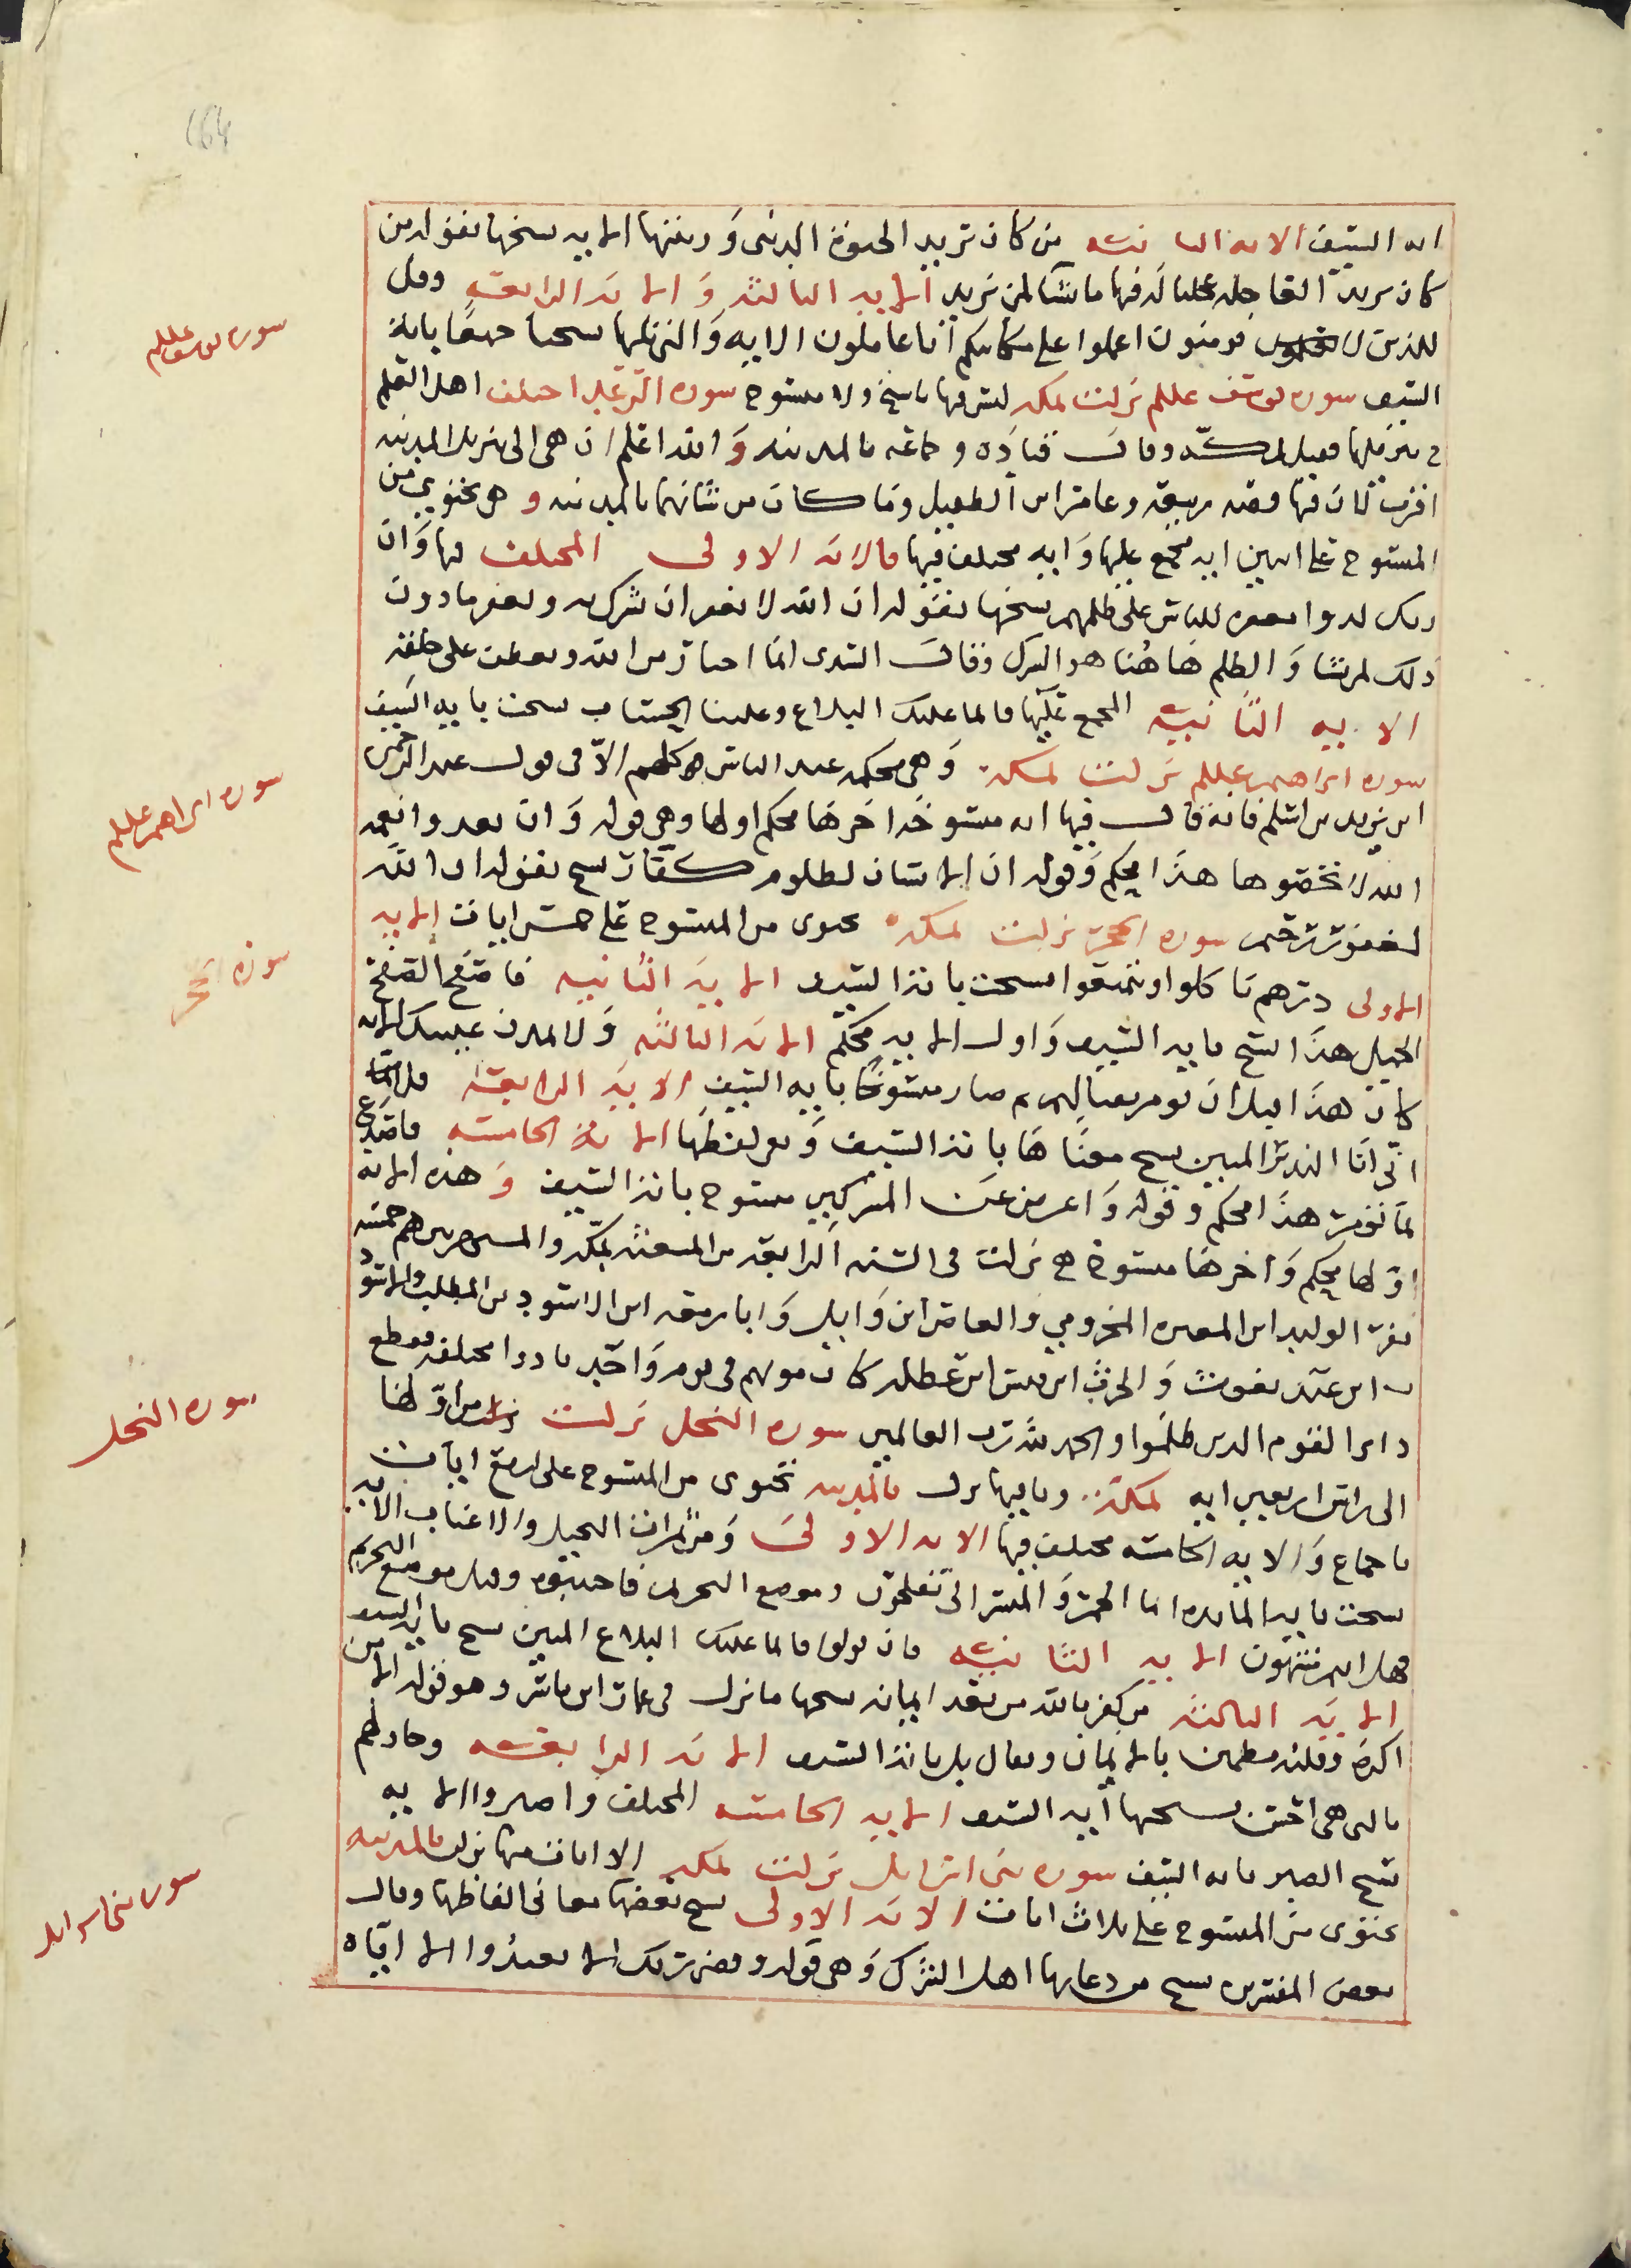 164
ايه السيف الايه الثانيه من كان يريد الحيوة الدنيا وزينتها الايه نسختها بقوله من
كان يريد العاجله عجلنا له فيها ما نشا لمن نريد الايه الثالثه والايه الرابعه وقل
للذين لا يومنون اعملوا على مكانتكم انا عاملون الايه والتي تليها نسختا جميعا باية
السيف سوره يوسف عللم نزلت بمكه ليس فيها ناسخ ولا منسوخ سوره الرعد اختلف اهل العلم
في تنزيلها فقيل بمكه وقال قتاده وجماعه بالمدينه والله اعلم ان هي الى تنزيل المدينه
اقرب لان فيها قصه ربيعه وعامر ابن الطفيل وما كان من شانهما بالمدينه وهي تحتوي من
المنسوخ على ايتين ايه مجمع عليها وايه مختلف فيها فالايه الاولى المختلف فيها وان
ربك لذوا مغفره للناس على ظلمهم نسخها بقوله ان الله لا يغفر ان يشرك به ويغفر ما دون
ذلك لمن يشا والظلم ها هنا هو الشرك وقال السدي انما اخبار من الله وتعطف على خلقه
الايه الثانيه المجمع عليها فانما عليك البلاغ وعلينا الحساب نسخت بايه السيف
سوره ابراهيم عللم نزلت بمكه وهي محكمه عند الناس كلهم الا في قول عبد الرحمن
ابن زيد بن اسلم فانه قال فيها ايه منسوخه اخرها محكم اولها وهي قوله وان تعدوا نعمه
الله لا تحصوها هذا محكم وقوله ان الانسان لظلوم كفار نسخ بقوله ان الله
لغفور رحيم سوره الحجر نزلت بمكه تحتوى من المنسوخ على خمس ايات الايه
الاولى ذرهم ياكلوا ويتمتعوا نسخت باية السيف الايه الثانيه فاصفح الصفح
الجميل هذا نسخ بايه السيف واول الايه محكم الايه الثالثه ولا تمدن عينيك الايه
كان هذا قبل ان يومر بقتالهم ثم صار منسوخا بايه السيف الايه الرابعه وقل
اني انا النذير المبين نسخ معناها باية السيف وبقي لفظها الاية الخامسه فاصدع
بما تومر هذا محكم وقوله واعرض عن المشركين منسوخ باية السيف وهذه الايه
اولها محكم واخرها منسوخ نزلت في السنه الرابعه من المبعث بمكه والمستهزين هم خمسه
نفر الوليد ابن المغيره المخزومي والعاص ابن وايل وابا زمعه ابن الاسود بن المطلب والاسود
ابن عبد يغوث والحرث ابن قيس ابن عيطله كان موتهم في يوم واحد بادوا مختلفه فقطع
دابر القوم الذين ظلموا والحمد لله رب العالمين سوره النحل نزلت من اولها
الى راس اربعين ايه بمكه وباقيها نزلت بالمدينه تحتوى من المنسوخ على اربع ايات
باجماع والايه الخامسه مختلف فيها الايه الاولى ومن ثمرات النخيل والاعناب الايه
نسخت بايه المايده انما الخمر والميسر الى تفلحون وموضع التحريم فاجتنبوه وقيل موضع التحريم
فهل انتم منتهون الايه الثانيه فان تولوا فانما عليك البلاغ المبين نسخ باية السيف
الايه الثالثه من كفر بالله من بعد ايمانه نسخها ما نزل في عمار ابن ياسر وهو قوله الا من
اكره وقلبه مطمين بالايمان ويقال بل باية السيف الايه الرابعه وجادلهم
بالتي هي احسن نسختها ايه السيف الايه الخامسه المختلف واصبروا الايه
نسخ الصبر بايه السيف سوره بني اسرايل نزلت بمكه الا ايات منها نزلت بالمدينه
تحتوى من المنسوخ على ثلاث ايات الايه الاولى نسخ بعضها معاني الفاظها وقال
بعض المفسرين نسخ من دعايها اهل الشرك وهي قوله وقضى ربك الا تعبدوا الا اياه
سوره يوسف عللم
سوره ابراهيم عللم
سورة الحجر
سوره النحل
سوره بني اسرايل